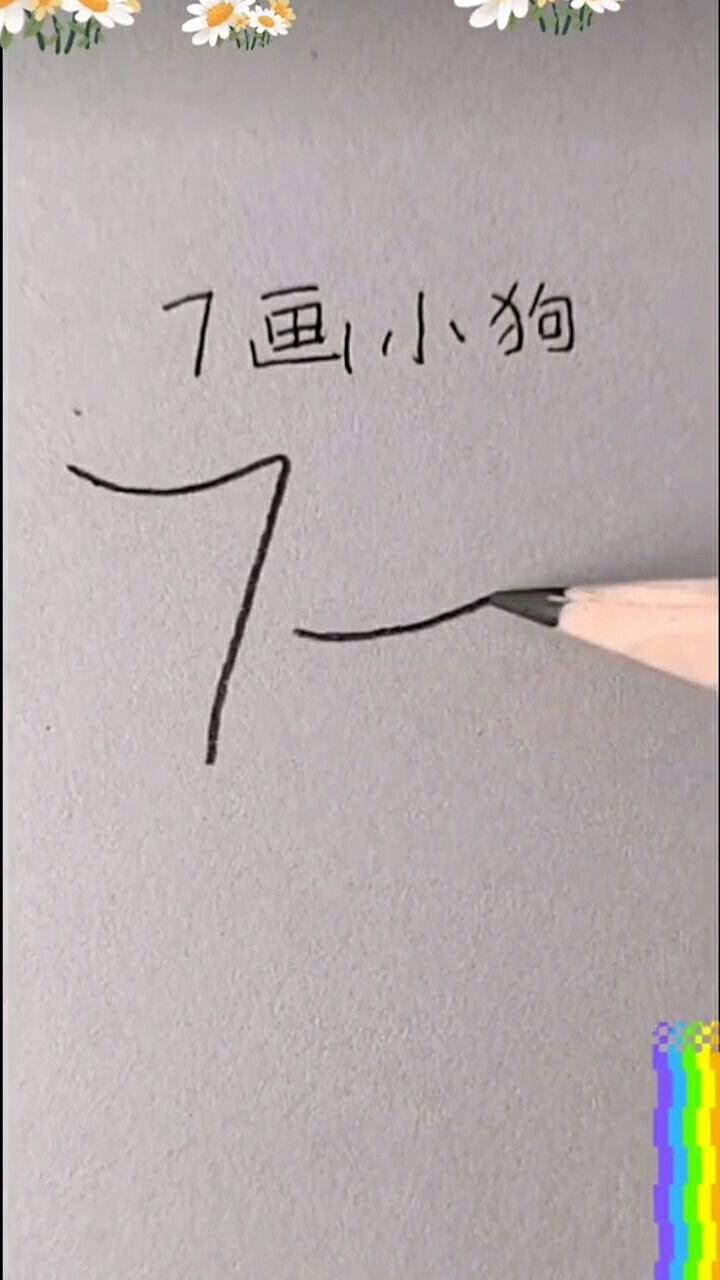 7画小狗
7